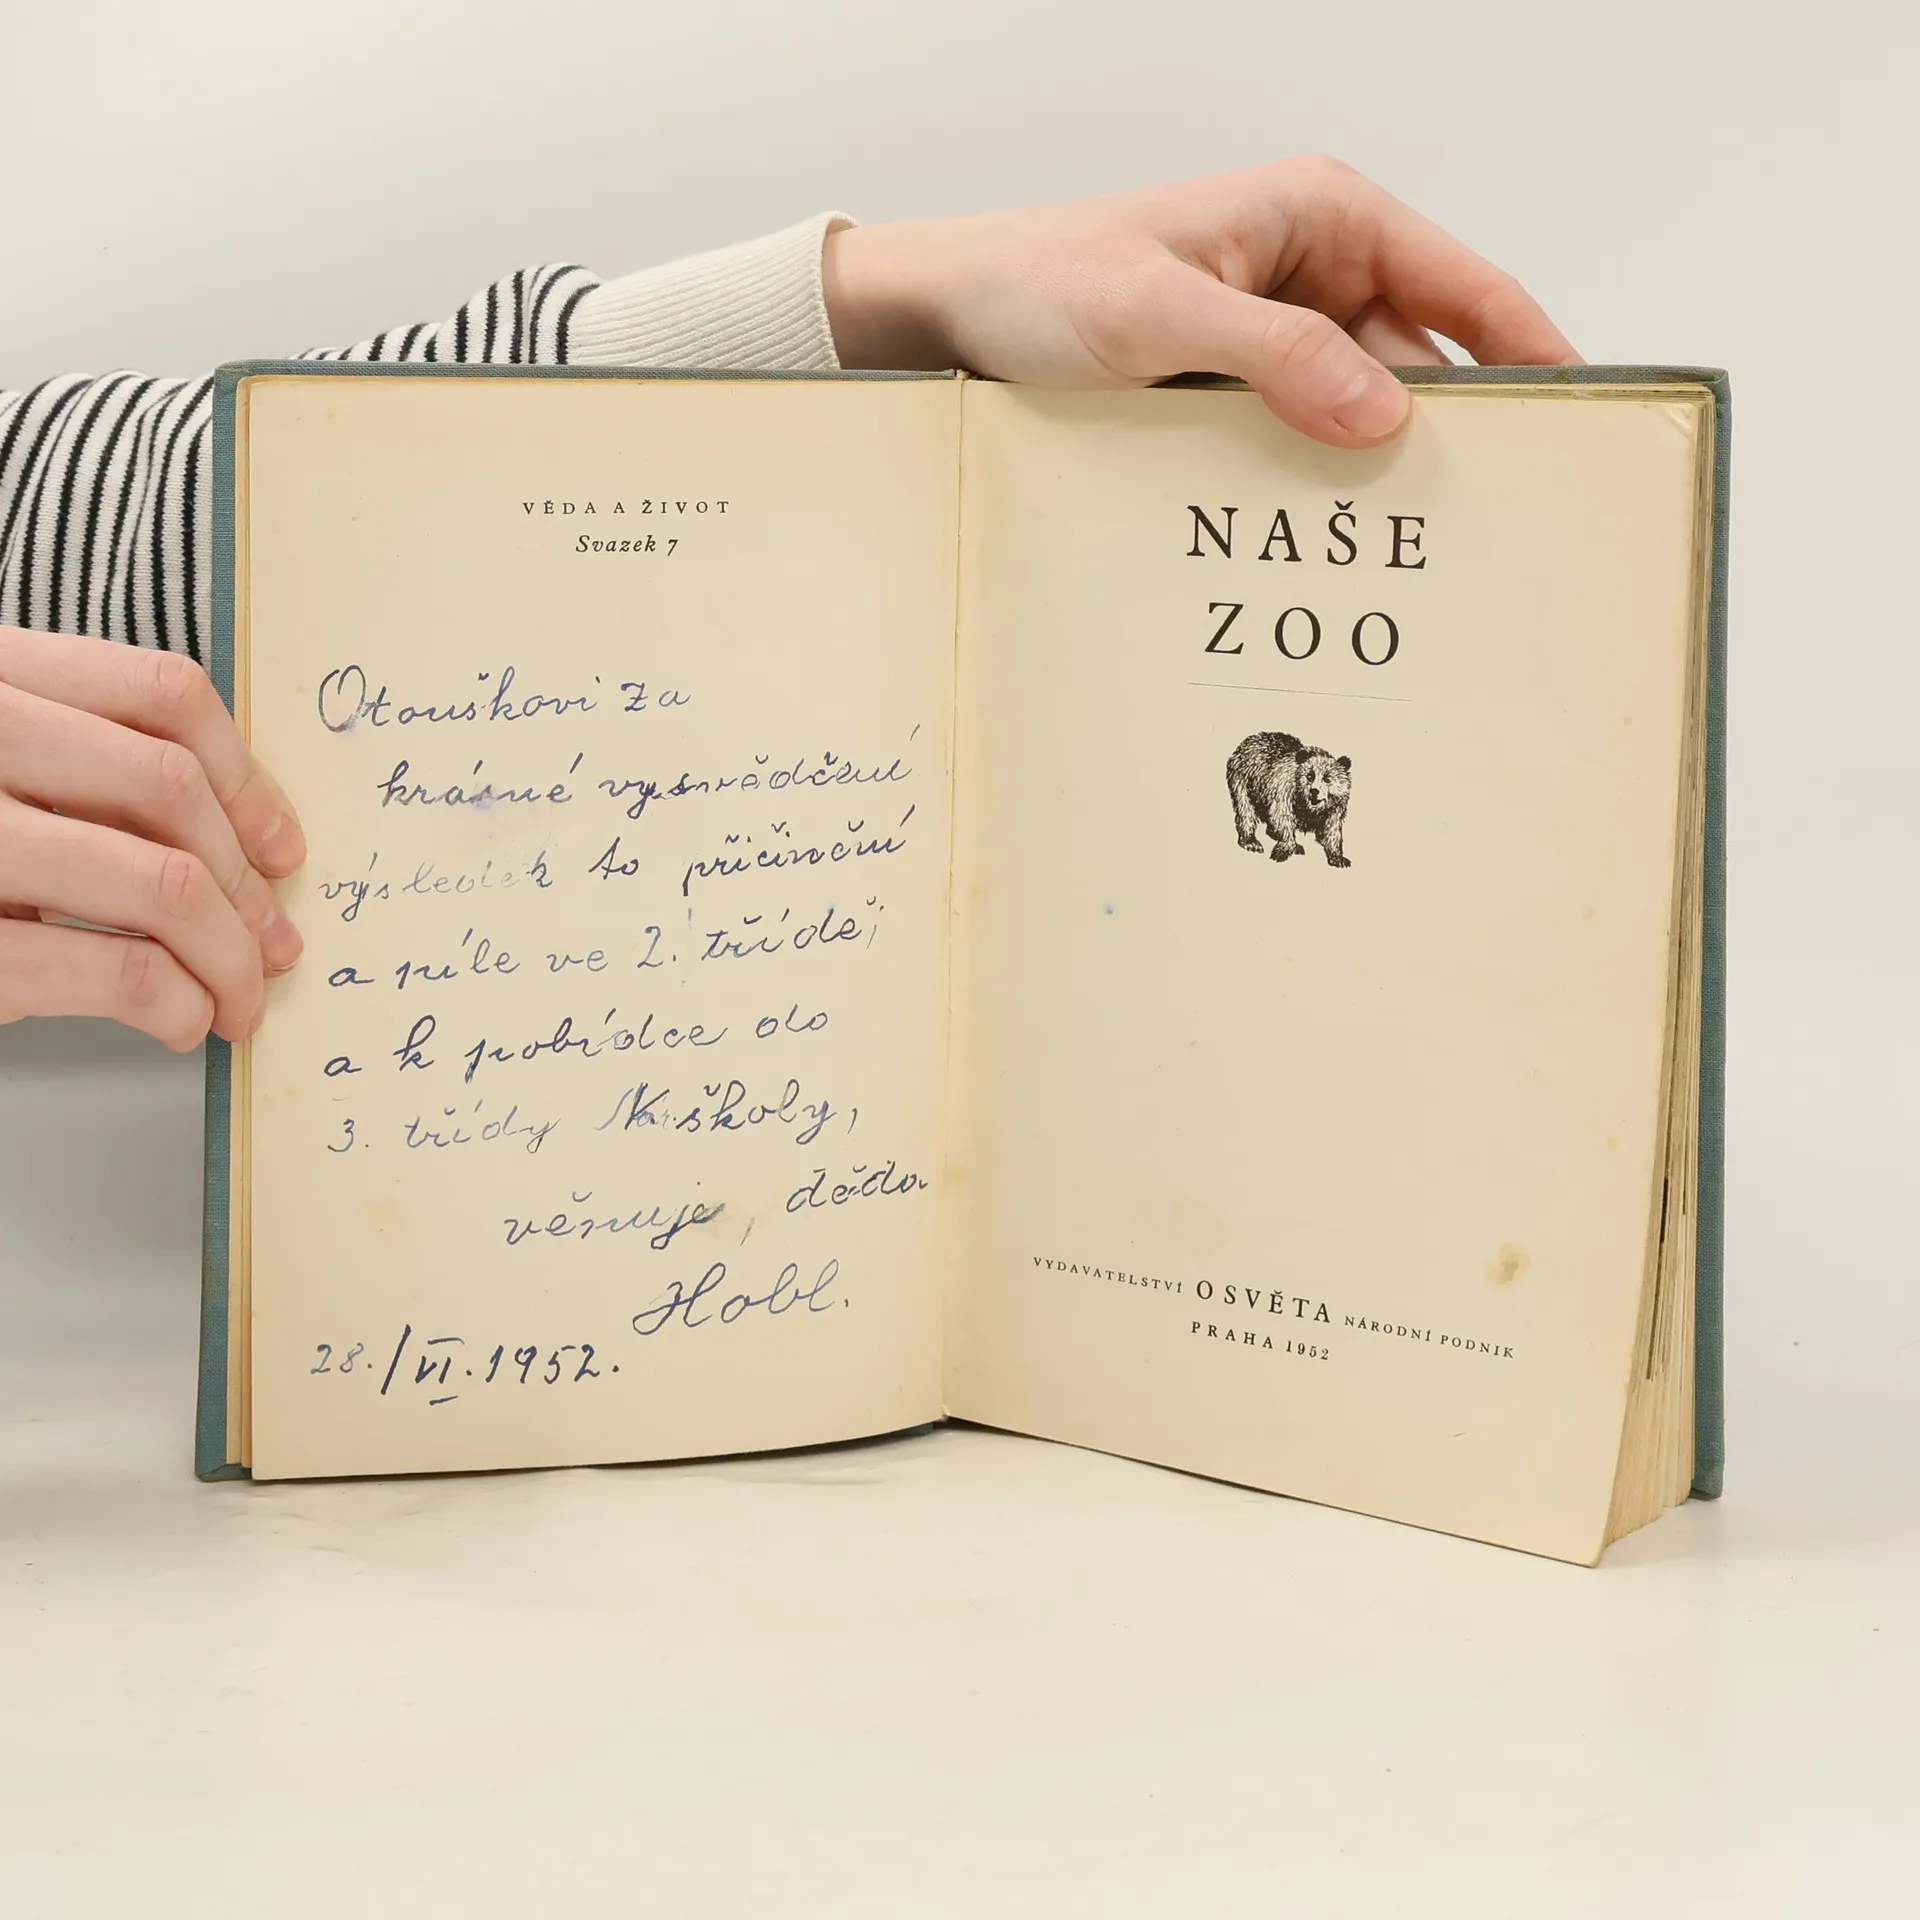 VĚDA A ŽIVOT
Svazek 7
Otouškovi za
krásné vysvědčení
výsledek to přičinění
a píle ve 2. třídě,
a k pobídce do
3. třídy Nár. školy,
věnuje, děda
Hobl.
28./VI. 1952.
NAŠE
ZOO
VYDAVATELSTVÍ OSVĚTA NÁRODNÍ PODNIK
PRAHA 1952